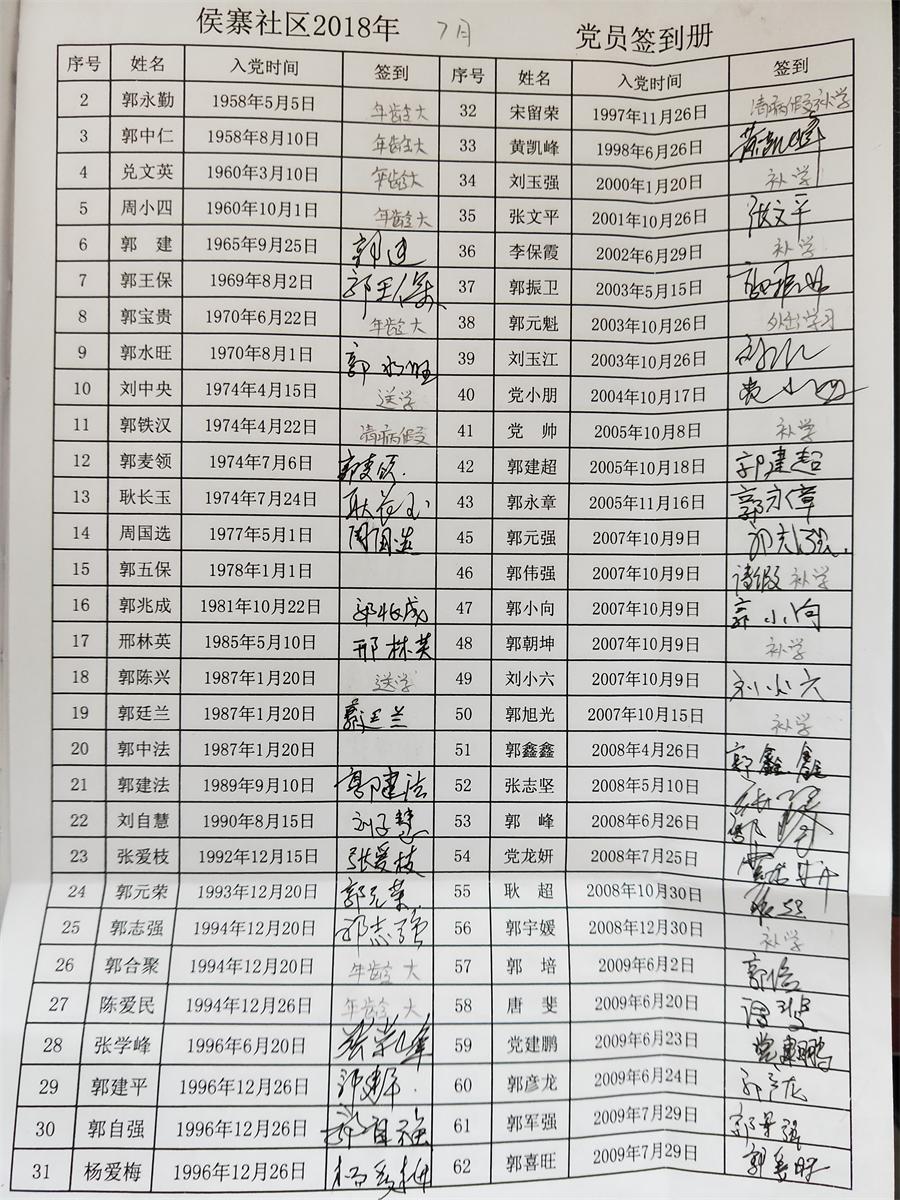 侯寨社区2018年 7月 党员签到册
序号 姓名 入党时间 签到 序号 姓名 入党时间 签到
2 郭永勤 1958年5月5日 年龄大 32 宋留荣 1997年11月26日 请病假补学
3 郭中仁 1958年8月10日 年龄大 33 黄凯峰 1998年6月26日 黄凯峰
4 兑文英 1960年3月10日 年龄大 34 刘玉强 2000年1月20日 补学
5 周小四 1960年10月1日 年龄大 35 张文平 2001年10月26日 张文平
6 郭 建 1965年9月25日 郭建 36 李保霞 2002年6月29日 补学
7 郭王保 1969年8月2日 郭王保 37 郭振卫 2003年5月15日 郭振卫
8 郭宝贵 1970年6月22日 年龄大 38 郭元魁 2003年10月26日 外出学习
9 郭水旺 1970年8月1日 郭水旺 39 刘玉江 2003年10月26日
10 刘中央 1974年4月15日 送学 40 党小朋 2004年10月17日 党小朋
11 郭铁汉 1974年4月22日 请病假 41 党 帅 2005年10月8日 补学
12 郭麦领 1974年7月6日 郭麦领 42 郭建超 2005年10月18日 郭建超
13 耿长玉 1974年7月24日 耿长玉 43 郭永章 2005年11月16日 郭永章
14 周国选 1977年5月1日 周国选 45 郭元强 2007年10月9日 郭元强
15 郭五保 1978年1月1日 46 郭伟强 2007年10月9日 请假 补学
16 郭兆成 1981年10月22日 郭兆成 47 郭小向 2007年10月9日 郭小向
17 邢林英 1985年5月10日 邢林英 48 郭朝坤 2007年10月9日 补学
18 郭陈兴 1987年1月20日 送学 49 刘小六 2007年10月9日 刘小六
19 郭廷兰 1987年1月20日 郭廷兰 50 郭旭光 2007年10月15日 补学
20 郭中法 1987年1月20日 51 郭鑫鑫 2008年4月26日 郭鑫鑫
21 郭建法 1989年9月10日 郭建法 52 张志坚 2008年5月10日
22 刘自慧 1990年8月15日 刘子慧 53 郭 峰 2008年6月26日 郭峰
23 张爱枝 1992年12月15日 张爱枝 54 党龙妍 2008年7月25日 党龙妍
24 郭元荣 1993年12月20日 郭元荣 55 耿 超 2008年10月30日 耿超
25 郭志强 1994年12月20日 郭志强 56 郭宇媛 2008年12月30日 补学
26 郭合聚 1994年12月20日 年龄大 57 郭 培 2009年6月2日 郭培
27 陈爱民 1994年12月26日 年龄大 58 唐 斐 2009年6月20日 唐斐
28 张学峰 1996年6月20日 59 党建鹏 2009年6月23日 党建鹏
29 郭建平 1996年12月26日 郭建平 60 郭彦龙 2009年6月24日 郭彦龙
30 郭自强 1996年12月26日 郭自强 61 郭军强 2009年7月29日 郭军强
31 杨爱梅 1996年12月26日 杨爱梅 62 郭喜旺 2009年7月29日 郭喜旺